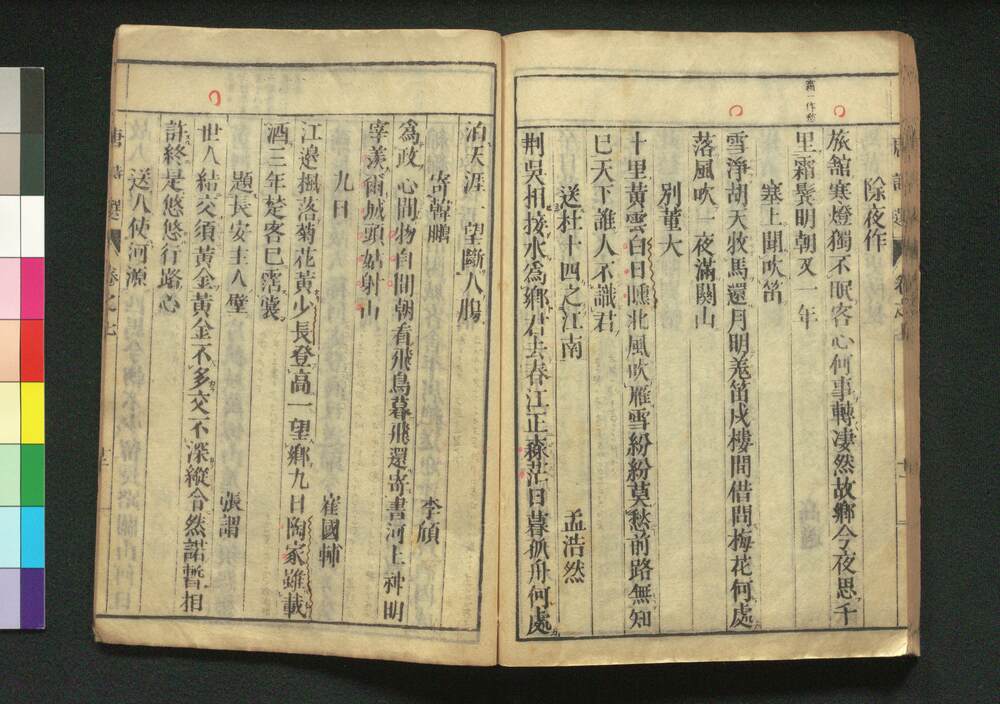 除夜作
旅館寒燈獨不眠客心何事轉凄然故鄉今夜思千
里霜鬢明朝又一年
塞上聞吹笛
雪淨胡天牧馬還月明羗笛戍樓間借問梅花何處
落風吹一夜滿關山
別董大
十里黃雲白日曛北風吹雁雪紛紛莫愁前路無知
巳天下誰人不識君
送杜十四之江南
孟浩然
荆吳相接水爲鄉君去春江正淼茫日暮孤舟何處
泊天涯一望斷人腸
寄韓鵬
李頎
爲政心閒物自閒朝看飛鳥暮飛還寄書河上神明
宰羡爾城頭姑射山
九日
崔國輔
江邊楓落菊花黃少長登高一望鄉九日陶家雖載
酒三年楚客巳霑裳
題長安主人壁
張謂
世人結交須黃金黃金不多交不深縱令然諾暫相
許終是悠悠行路心
送人使河源
唐詩選
卷之七